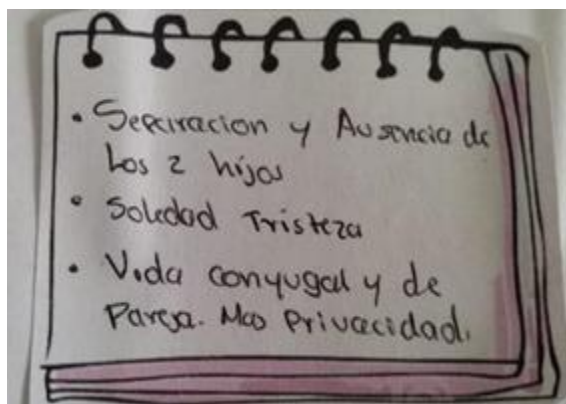 • Separacion y Ausencia de
los 2 hijos
• Soledad Tristeza
• Vida conyugal y de
Pareja. Mas Privacidad.